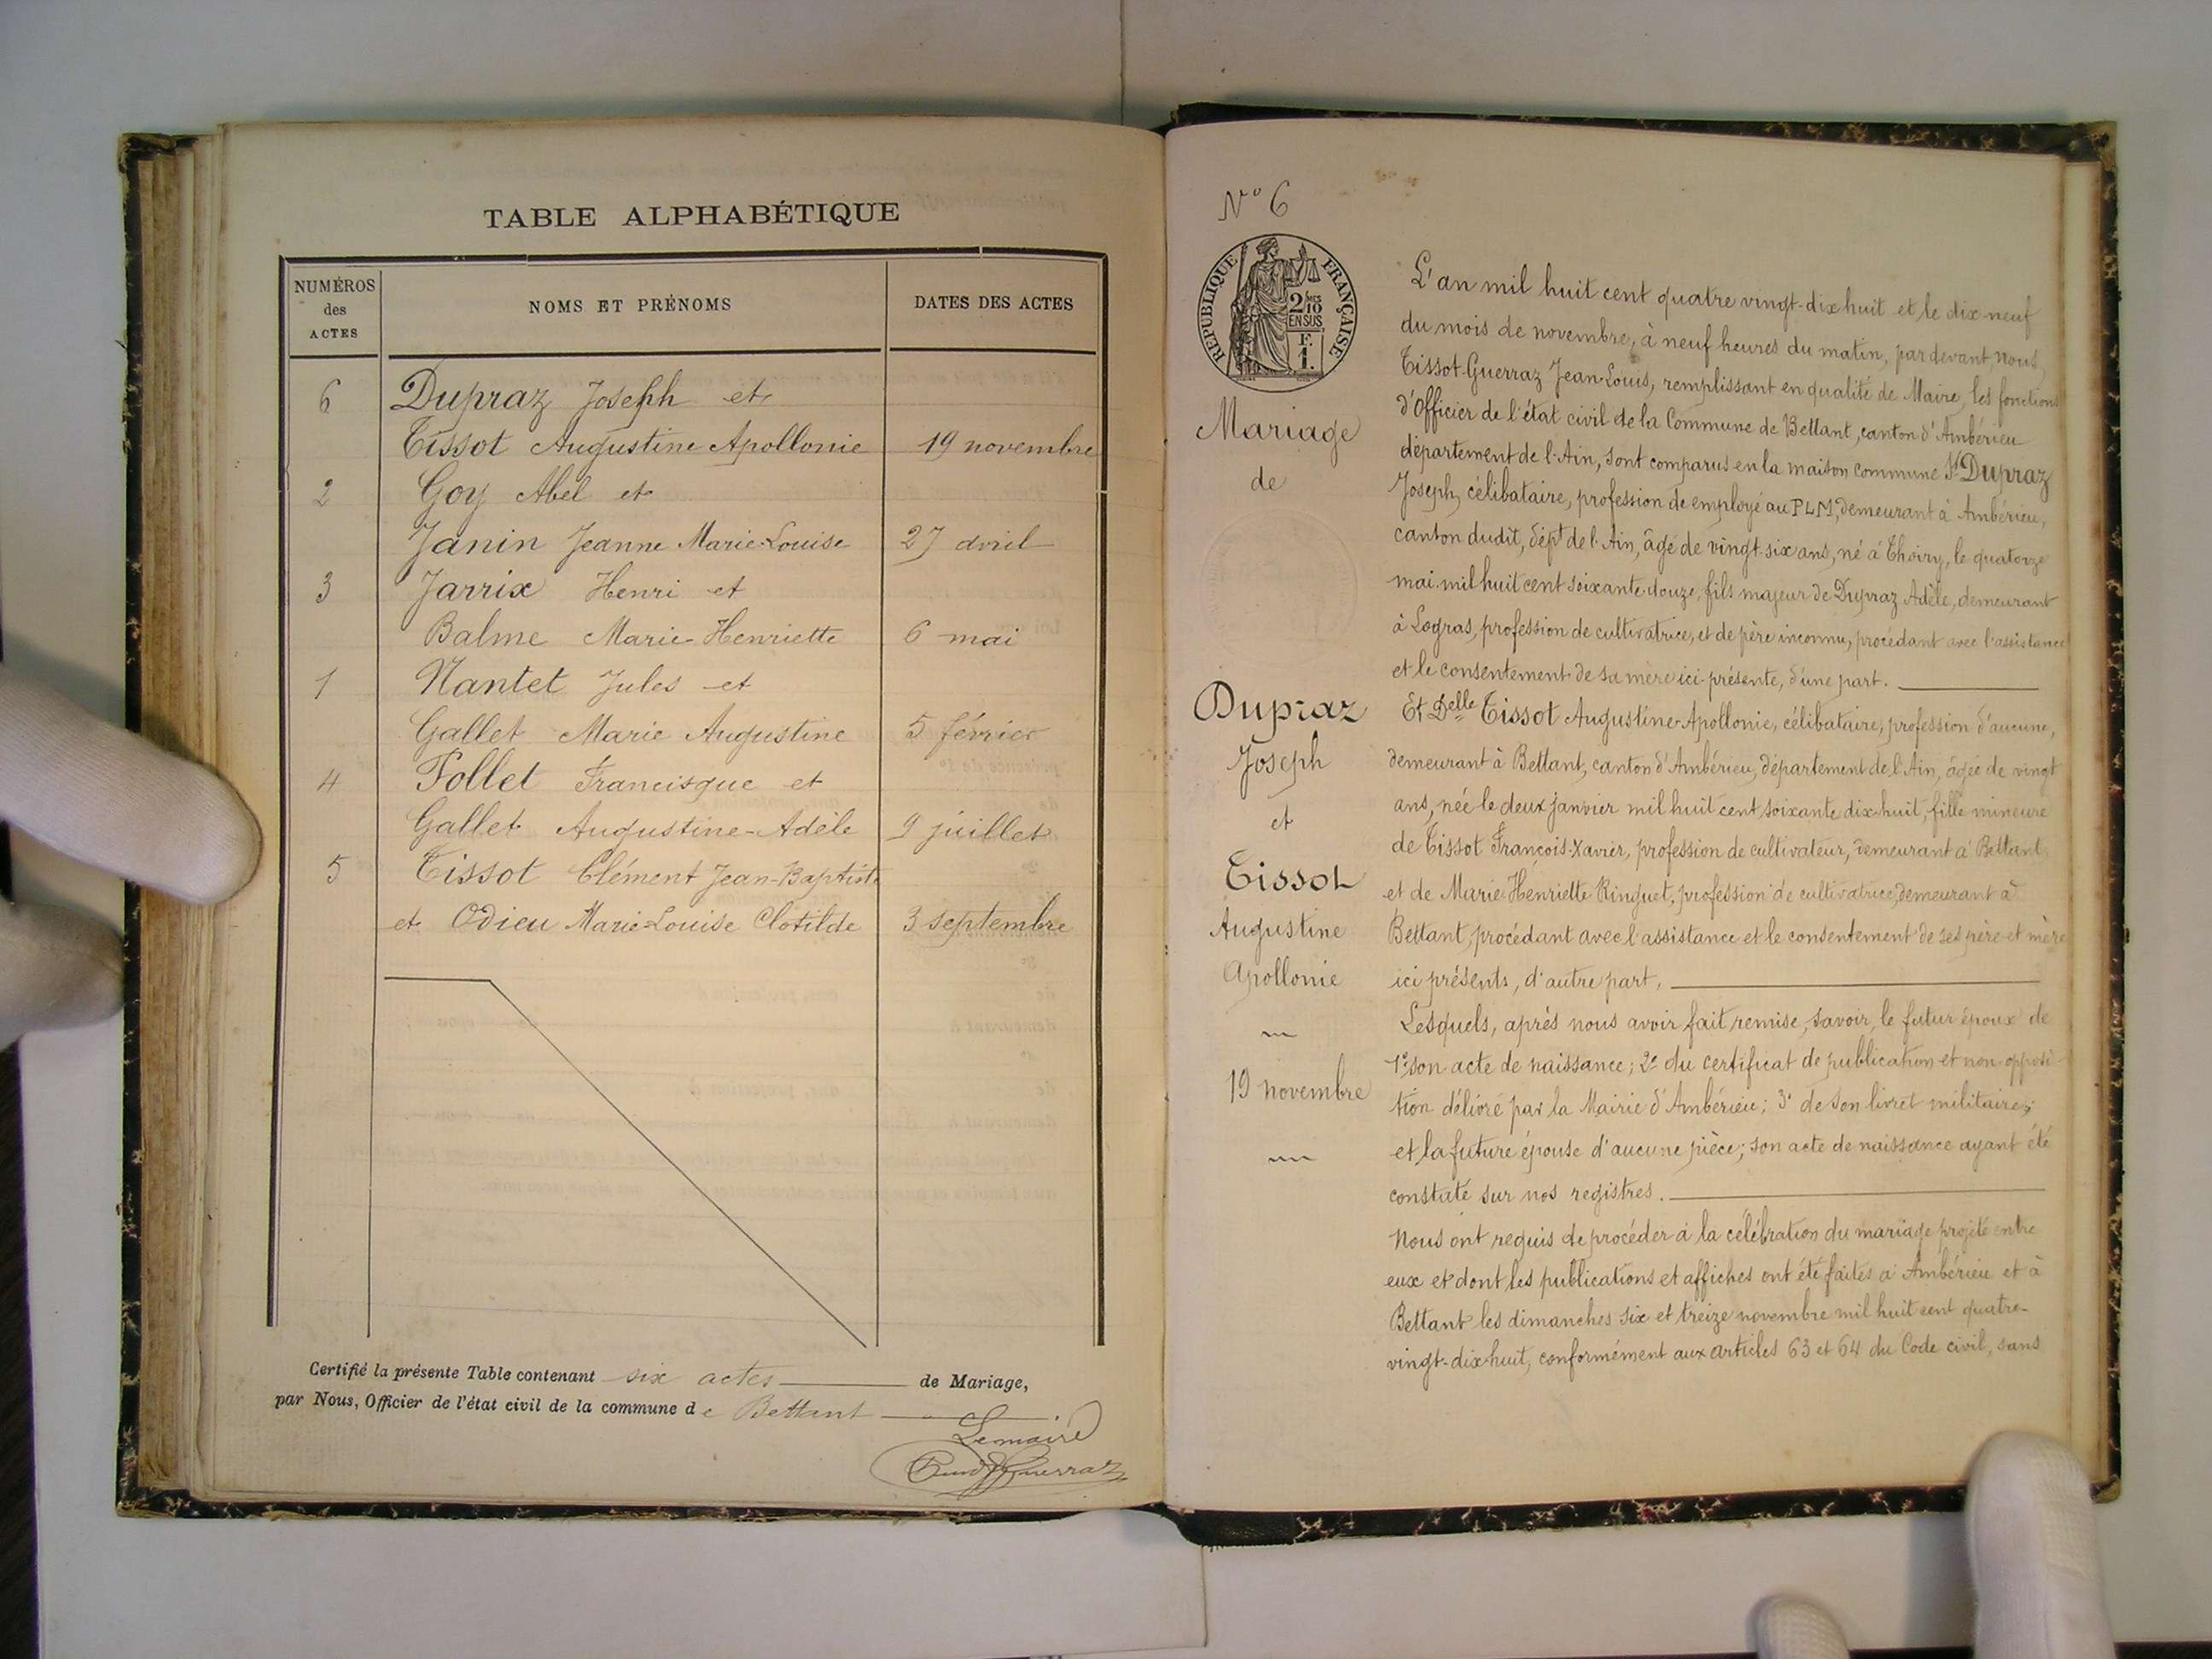 TABLE ALPHABÉTIQUE
NUMÉROS des ACTES
NOMS ET PRÉNOMS
DATES DES ACTES
6 Dupraz Joseph et
Tissot Augustine Apollonie 19 novembre
2 Goy Abel et
Janin Jeanne Marie-Louise 27 avril
3 Jarrix Henri et
Balme Marie-Henriette 6 mai
1 Nantet Jules et
Gallet Marie Augustine 5 février
4 Pollet Francisque et
Gallet Augustine-Adèle 9 juillet
5 Tissot Clément Jean-Baptiste
et Odieu Marie-Louise Clotilde 3 septembre
Certifié la présente Table contenant six actes de Mariage,
par Nous, Officier de l'état civil de la commune de Bettant
Le maire
N° 6
RÉPUBLIQUE FRANÇAISE
2/10 MES
EN SUS
F.
1.
Mariage
de
Dupraz
Joseph
et
Tissot
Augustine
Apollonie
19 novembre
L'an mil huit cent quatre vingt-dix huit et le dix neuf
du mois de novembre, à neuf heures du matin, par devant nous,
Tissot-Guerraz Jean-Louis, remplissant en qualité de Maire, les fonctions
d'Officier de l'état civil de la Commune de Bettant, canton d'Ambérieu
département de l'Ain, sont comparus en la maison commune Sr Dupraz
Joseph, célibataire, profession de employé au PLM, demeurant à Ambérieu,
canton dudit, dépt de l'Ain, âgé de vingt-six ans, né à Thoiry, le quatorze
mai mil huit cent soixante-douze, fils majeur de Dupraz Adèle, demeurant
à Logras, profession de cultivatrice, et de père inconnu, procédant avec l'assistance
et le consentement de sa mère ici présente, d'une part.
Et Delle Tissot Augustine-Apollonie, célibataire, profession d'aucune,
demeurant à Bettant, canton d'Ambérieu, département de l'Ain, âgée de vingt
ans, née le deux janvier mil huit cent soixante dix huit, fille mineure
de Tissot François-Xavier, profession de cultivateur, demeurant à Bettant
et de Marie Henriette Ringuet, profession de cultivatrice, demeurant à
Bettant, procédant avec l'assistance et le consentement de ses père et mère
ici présents, d'autre part,
Lesquels, après nous avoir fait remise, savoir, le futur époux de
1° son acte de naissance; 2° du certificat de publication et non opposi-
tion délivré par la Mairie d'Ambérieu; 3° de son livret militaire;
et la future épouse d'aucune pièce; son acte de naissance ayant été
constaté sur nos registres.
Nous ont requis de procéder à la célébration du mariage projeté entre
eux et dont les publications et affiches ont été faites à Ambérieu et à
Bettant les dimanches six et treize novembre mil huit cent quatre-
vingt-dix huit, conformément aux articles 63 et 64 du Code civil, sans